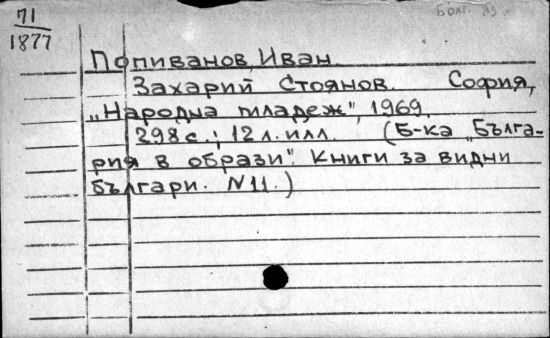 71
1877
Попиванов, Иван.
Захарий Стоянов. София,
„Народна младеж", 1969.
298 с.; 12 л. илл. (Б-ка „Бълга-
рия в образи". Книги за видни
българи. N 11.)